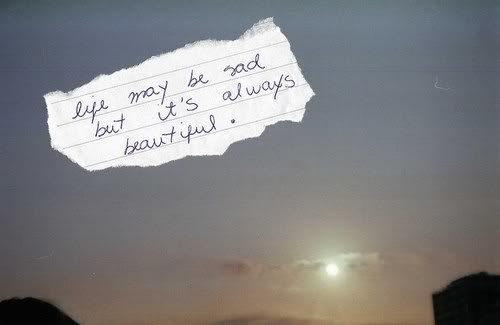 life may be sad
but it's always
beautiful.